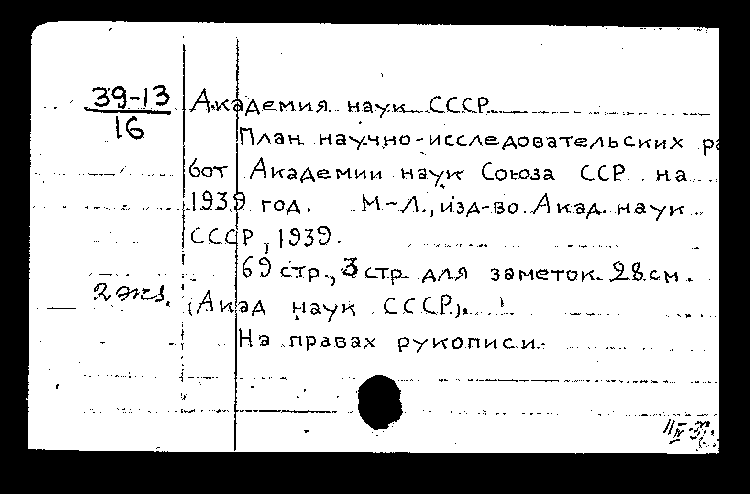 39-13
16
Академия наук СССР
План научно-исследовательских ра
бот Академии наук Союза ССР на
1939 год. М-Л., изд-во Акад. наук
СССР, 1939.
69 стр., 3 стр для заметок. 28 см.
2 экз.
(Акад наук СССР).
На правах рукописи.